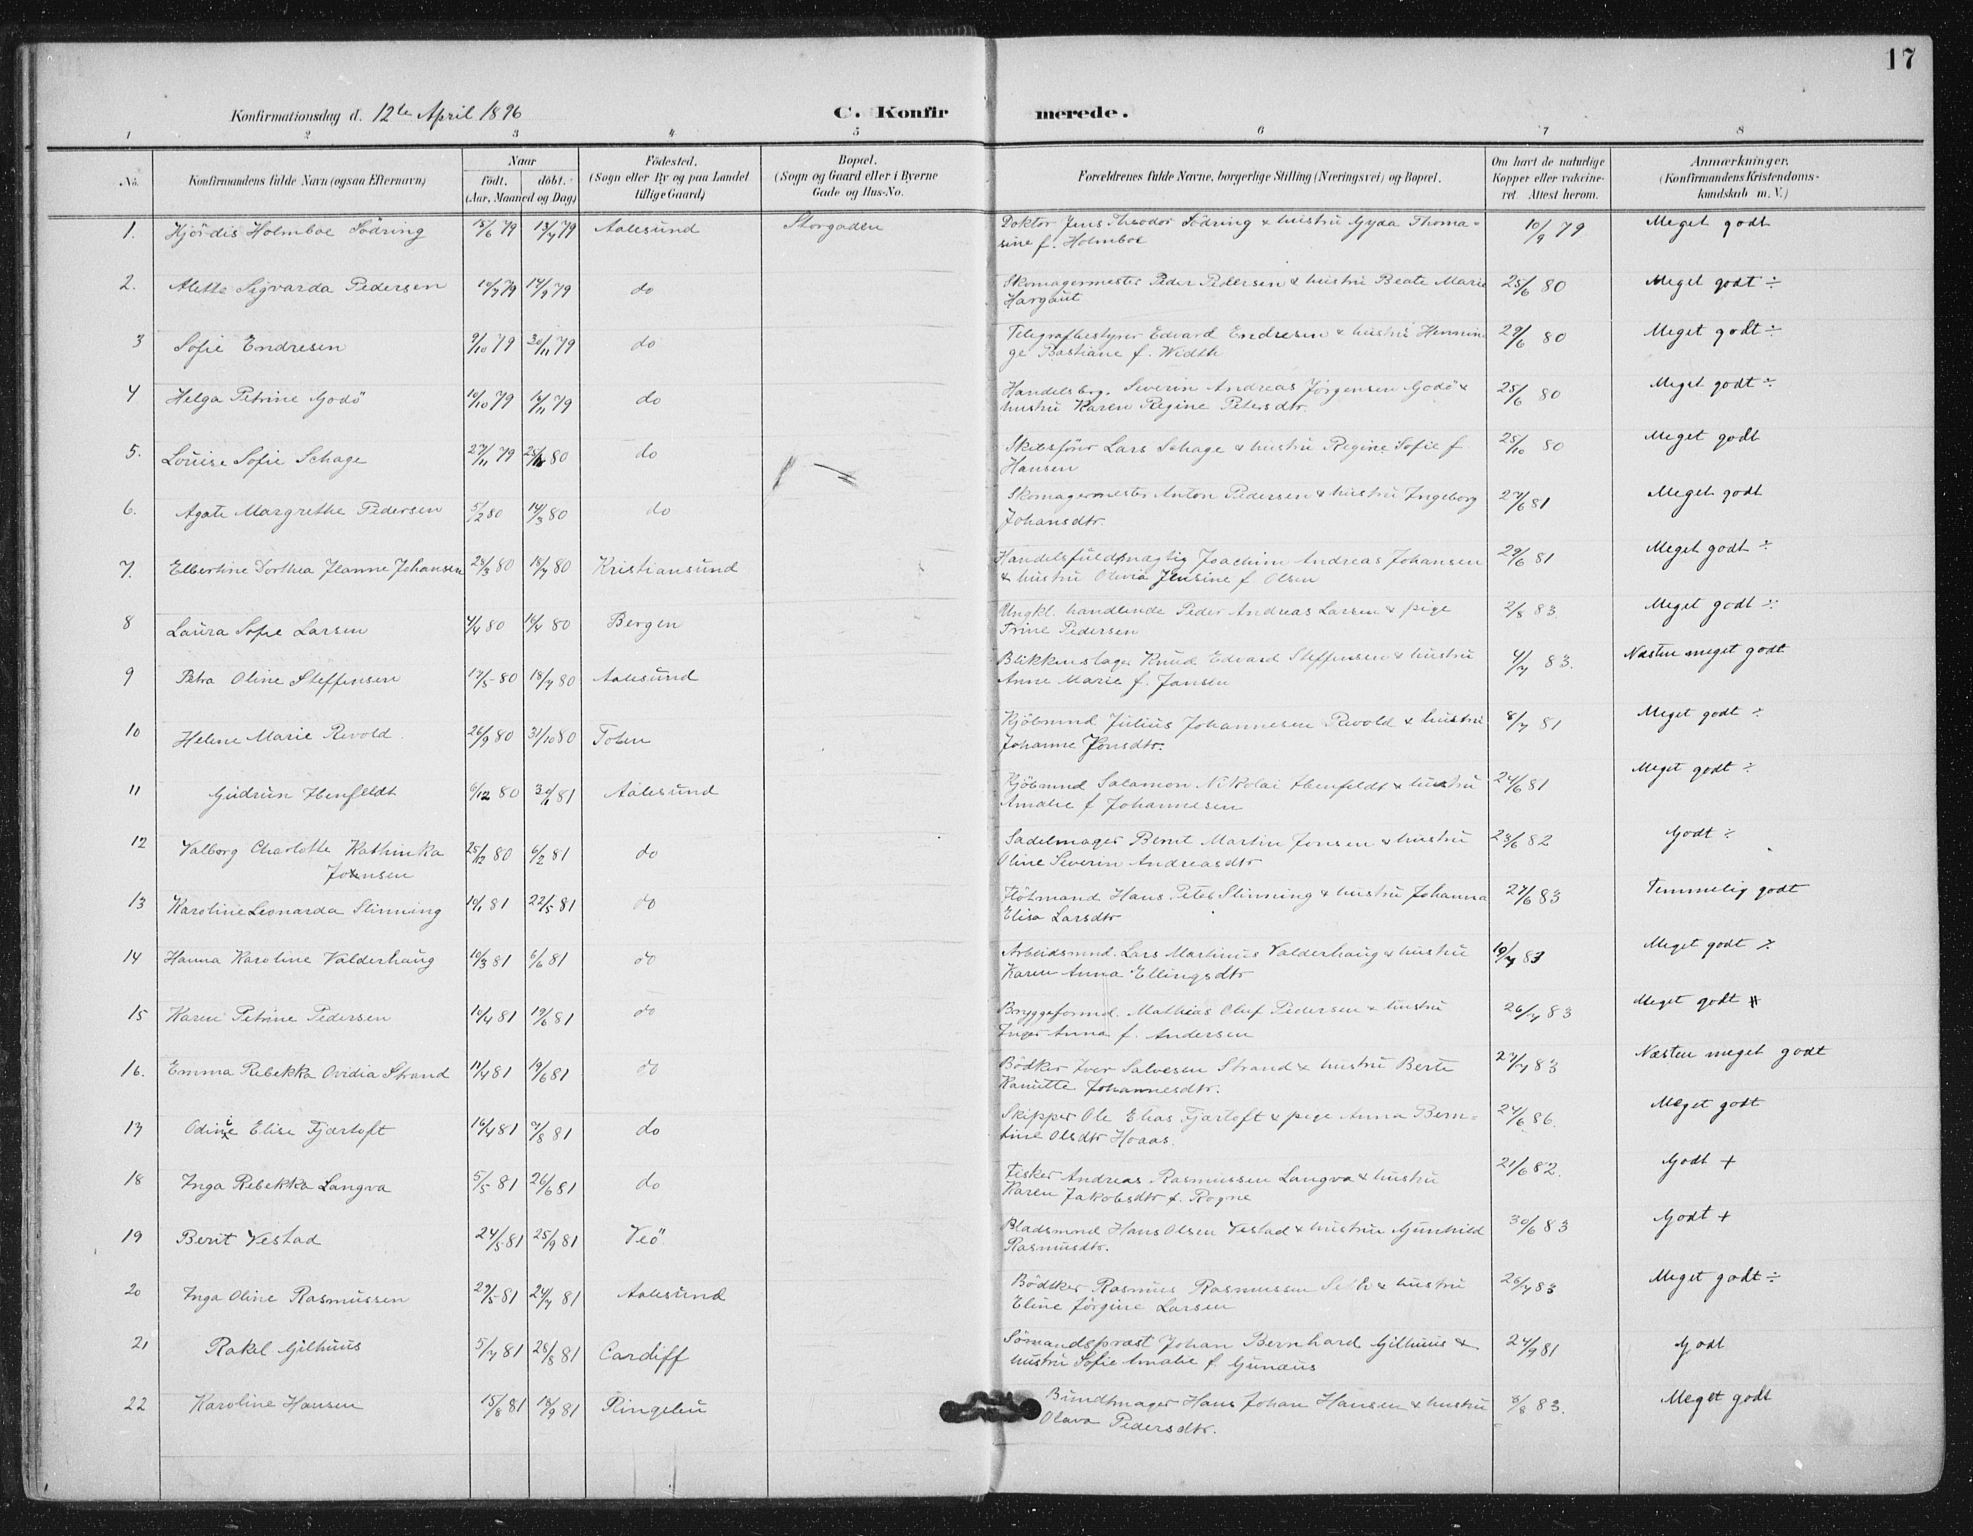 17
Konfirmationsdag d. 12te April 1896
C. Konfirmerede.
1 2 3 4 5 6 7 8
No. Konfirmandens fulde Navn (ogsaa Efternavn) Naar födt. döbt. (Aar, Maaned og Dag) Födested. (Sogn eller By og paa Landet tillige Gaard) Bopæl. (Sogn og Gaard eller i Byerne Gade og Hus-No. Forældrenes fulde Navne, borgerlige Stilling (Næringsvei) og Bopæl. Om havt de naturlige Kopper eller vaccineret. Attest herom. Anmærkninger. (Konfirmandens Kristendomskundskab m. V.)
1. Hjördis Holmboe Södring 15/6 79 13/7 79 Aalesund Storgaden Doktor Jens Theodor Södring & hustru Gyda Thoma-
sine f. Holmboe 10/9 79 Meget godt
2. Alette Sigvarda Pedersen 10/7 79 14/9 79 do Skomagermester Peder Pedersen & hustru Beate Marie
Hargaut 25/6 80 Meget godt ÷
3 Sofie Endresen 9/10 79 30/11 79 do Telegrafbestyrer Edvard Endresen & hustru Hennin
ge Bastiane f. Width 29/6 80 Meget godt ÷
4 Helga Petrine Godö 10/10 79 do Handelsbrg. Severin Andreas Jørgensen Godö &
hustru Karen Regine Petersdtr. 25/6 80 Meget godt ÷
5. Louise Sofie Schage 27/11 79 80 do Skibsförer Lars Schage & hustru Regine Sofie f
Hansen 25/10 80 Meget godt
6. Agate Margrethe Pedersen 5/2 80 14/3 80 do Skomagermester Anton Pedersen & hustru Ingeborg
Johansdtr. 27/6 81 Meget godt
7. Elbertine Dorthea Jeanne Johansen 23/3 80 18/7 80 Kristiansund Handelsfuldmægtig Joachim Andreas Johansen
& hustru Olivia Jensine f Olsen 29/6 81 Meget godt ÷
8 Laura Sofie Larsen 4/4 80 14/4 80 Bergen Ungkl. handlende Peder Andreas Larsen & pige
Trine Pedersen 2/8 83. Meget godt ÷
9 Petra Oline Steffensen 17/5 80 18/7 80 Aalesund Blikkenslager Knud Edvard Steffensen & hustru
Anne Marie f. Jansen 4/7 83. Næsten meget godt
10 Helene Marie Revold. 26/9 80 31/10 80 Toten Kjöbmnd Julius Johannesen Revold & hustru
Johanne Jonsdtr. 8/7 81 Meget godt ÷
11 Gudrun Ibenfeldt 6/12 80 30/1 81 Aalesund Kjöbmnd Salamon Nikolai Ibenfeldt & hustru
Amalie f Johannesen 24/6 81 Meget godt ÷
12 Valborg Charlotte Kathinka
Jonsen 25/12 80 6/2 81 do Sadelmager Bernt Martin Jonsen & hustru
Oline Severin Andreasdtr 23/6 82 Godt ÷
13 Karoline Leonarda Slinning 14/1 81 22/5 81 do Köbmand Hans Peter Slinning & hustru Johanna
Elisa Larsdtr 27/6 83 Temmelig godt
14 Hanna Karoline Valderhaug 10/3 81 6/6 81 do Arbeidsmnd. Lars Martinus Valderhaug & hustru
Karen Anna Ellingsdtr 19/7 83 Meget godt ÷
15 Karen Petrine Pedersen 10/4 81 19/6 81 do Bryggeformd. Mathias Oluf Pedersen & hustru
Inger Anna f. Andersen 26/7 83 Meget godt +
16. Emma Rebekka Ovidia Strand 11/4 81 19/6 81 do Bödker Iver Salvesen Strand & hustru Berte
Kanutte Johannesdtr. 27/7 83 Næsten meget godt
17 Odine Elise Fjørtoft 16/4 81 7/8 81 do Skipper Ole Elias Fjørtoft & pige Anna Bern-
tine Olsdtr Hoaas. 24/6 86. Meget godt
18 Inga Rebekka Langva 5/5 81 26/6 81 do Fisker Andreas Rasmussen Langva & hustru
Karen Jakobsdtr f. Rogne 21/6 82. Godt +
19 Berit Vestad 24/5 81 25/9 81 Veö Bladsmnd Hans Olsen Vestad & hustru Gunhild
Rasmusdtr. 30/6 83 Godt +
20 Inga Oline Rasmussen 29/5 81 24/7 81 Aalesund Bödtker Rasmus Rasmussen & hustru
Eline Jörgine Larsen 26/7 83 Meget godt ÷
21 Rakel Gilhuus 5/7 81 28/8 81 Cardiff Sömandspræst Johan Bernhard Gilhuus &
hustru Sofie Amalie f. Gunæus 24/9 81 Godt
22 Karoline Hansen 15/8 81 18/9 81 Ringebu Bundtmager Hans Johan Hansen & hustru
Olava Pedersdtr. 8/8 83. Meget godt